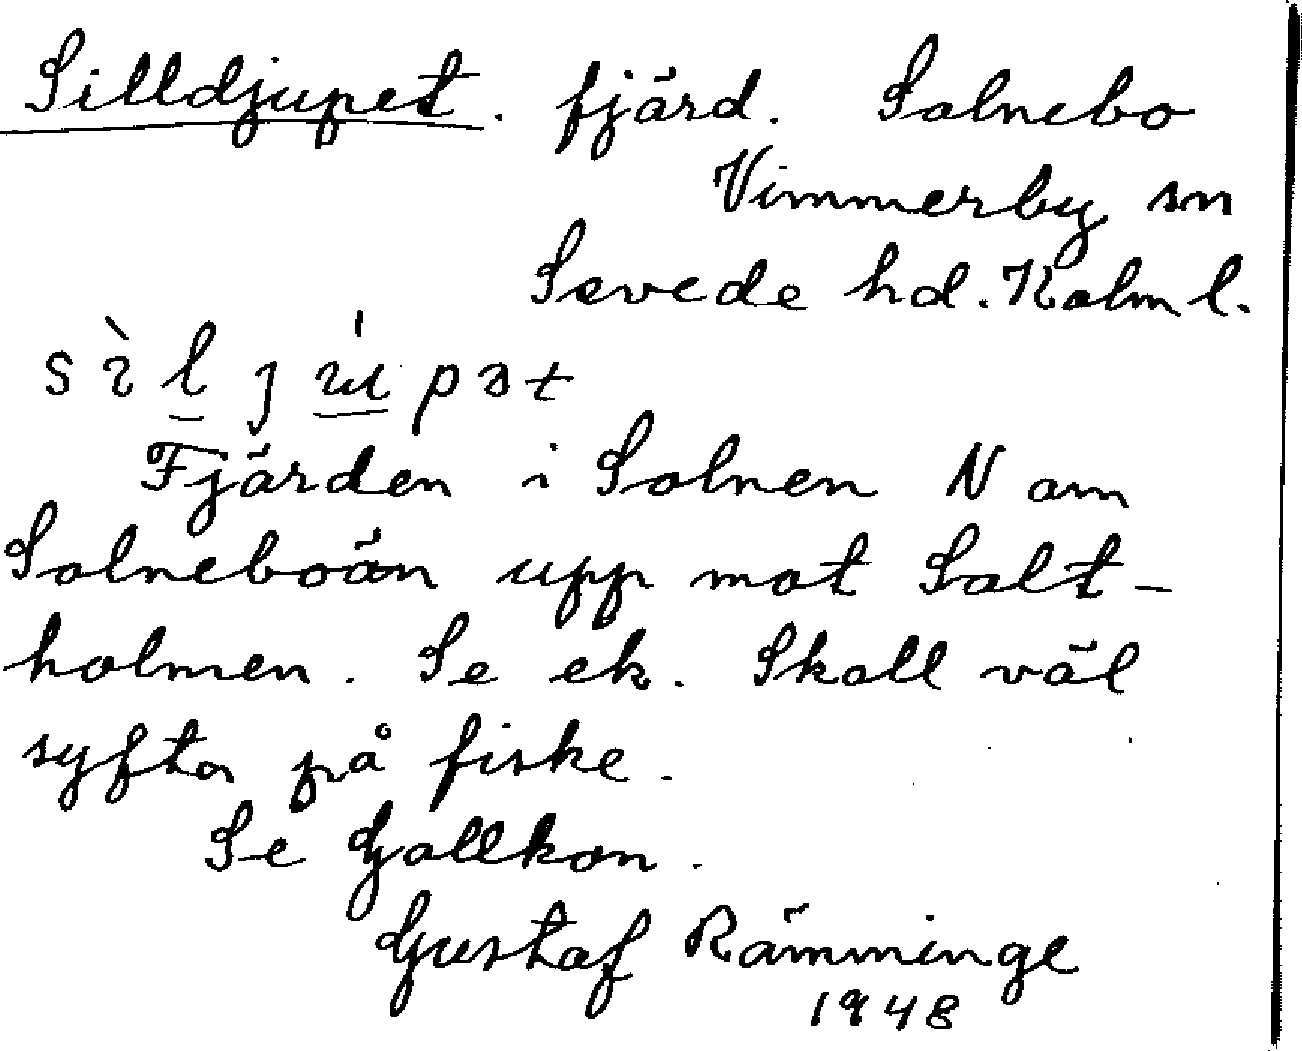 Silldjupet. fjärd. Solnebo
Vimmerby sn
Sevede hd. Kalm l.
Fjärden i Solnen N om
Solneboän upp mot Salt-
holmen. Se ek. Skall väl
syfta på fiske.
Se Gallkon.
Gustaf Rämminge
1948